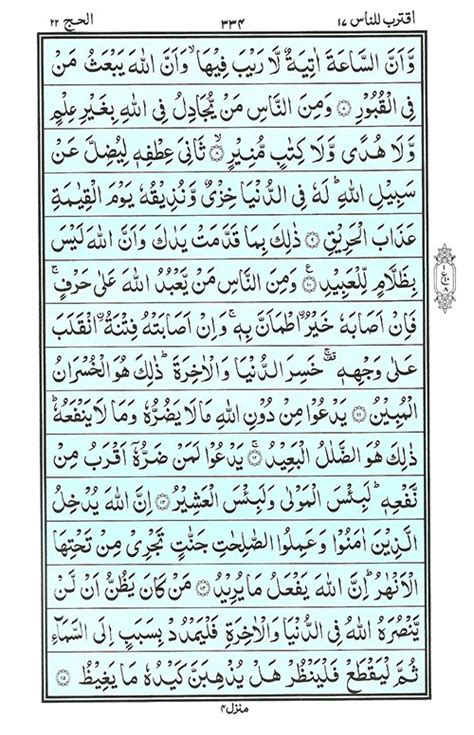 اقترب للناس ١٧ ٣٣٤ الحج ٢٢
وَّاَنَّ السَّاعَةَ اٰتِيَةٌ لَّا رَيْبَ فِيْهَا ۙ وَاَنَّ اللّٰهَ يَبْعَثُ مَنْ
فِى الْقُبُوْرِ ۝۷ وَمِنَ النَّاسِ مَنْ يُّجَادِلُ فِى اللّٰهِ بِغَيْرِ عِلْمٍ
وَّلَا هُدًى وَّلَا كِتٰبٍ مُّنِيْرٍ ۝۸ ثَانِىَ عِطْفِهٖ لِيُضِلَّ عَنْ
سَبِيْلِ اللّٰهِ ؕ لَهٗ فِى الدُّنْيَا خِزْىٌ وَّنُذِيْقُهٗ يَوْمَ الْقِيٰمَةِ
عَذَابَ الْحَرِيْقِ ۝۹ ذٰلِكَ بِمَا قَدَّمَتْ يَدٰكَ وَاَنَّ اللّٰهَ لَيْسَ
بِظَلَّامٍ لِّلْعَبِيْدِ ۝۱۰ وَمِنَ النَّاسِ مَنْ يَّعْبُدُ اللّٰهَ عَلٰى حَرْفٍ ۚ
فَاِنْ اَصَابَهٗ خَيْرُ ۨ اطْمَاَنَّ بِهٖ ۚ وَاِنْ اَصَابَتْهُ فِتْنَةُ ۨ انْقَلَبَ
عَلٰى وَجْهِهٖ ۚ خَسِرَ الدُّنْيَا وَالْاٰخِرَةَ ؕ ذٰلِكَ هُوَ الْخُسْرَانُ
الْمُبِيْنُ ۝۱۱ يَدْعُوْا مِنْ دُوْنِ اللّٰهِ مَا لَا يَضُرُّهٗ وَمَا لَا يَنْفَعُهٗ ؕ
ذٰلِكَ هُوَ الضَّلٰلُ الْبَعِيْدُ ۝۱۲ يَدْعُوْا لَمَنْ ضَرُّهٗۤ اَقْرَبُ مِنْ
نَّفْعِهٖ ؕ لَبِئْسَ الْمَوْلٰى وَلَبِئْسَ الْعَشِيْرُ ۝۱۳ اِنَّ اللّٰهَ يُدْخِلُ
الَّذِيْنَ اٰمَنُوْا وَعَمِلُوا الصّٰلِحٰتِ جَنّٰتٍ تَجْرِىْ مِنْ تَحْتِهَا
الْاَنْهٰرُ ؕ اِنَّ اللّٰهَ يَفْعَلُ مَا يُرِيْدُ ۝۱۴ مَنْ كَانَ يَظُنُّ اَنْ لَّنْ
يَّنْصُرَهُ اللّٰهُ فِى الدُّنْيَا وَالْاٰخِرَةِ فَلْيَمْدُدْ بِسَبَبٍ اِلَى السَّمَآءِ
ثُمَّ لْيَقْطَعْ فَلْيَنْظُرْ هَلْ يُذْهِبَنَّ كَيْدُهٗ مَا يَغِيْظُ ۝۱۵
منزل ۴